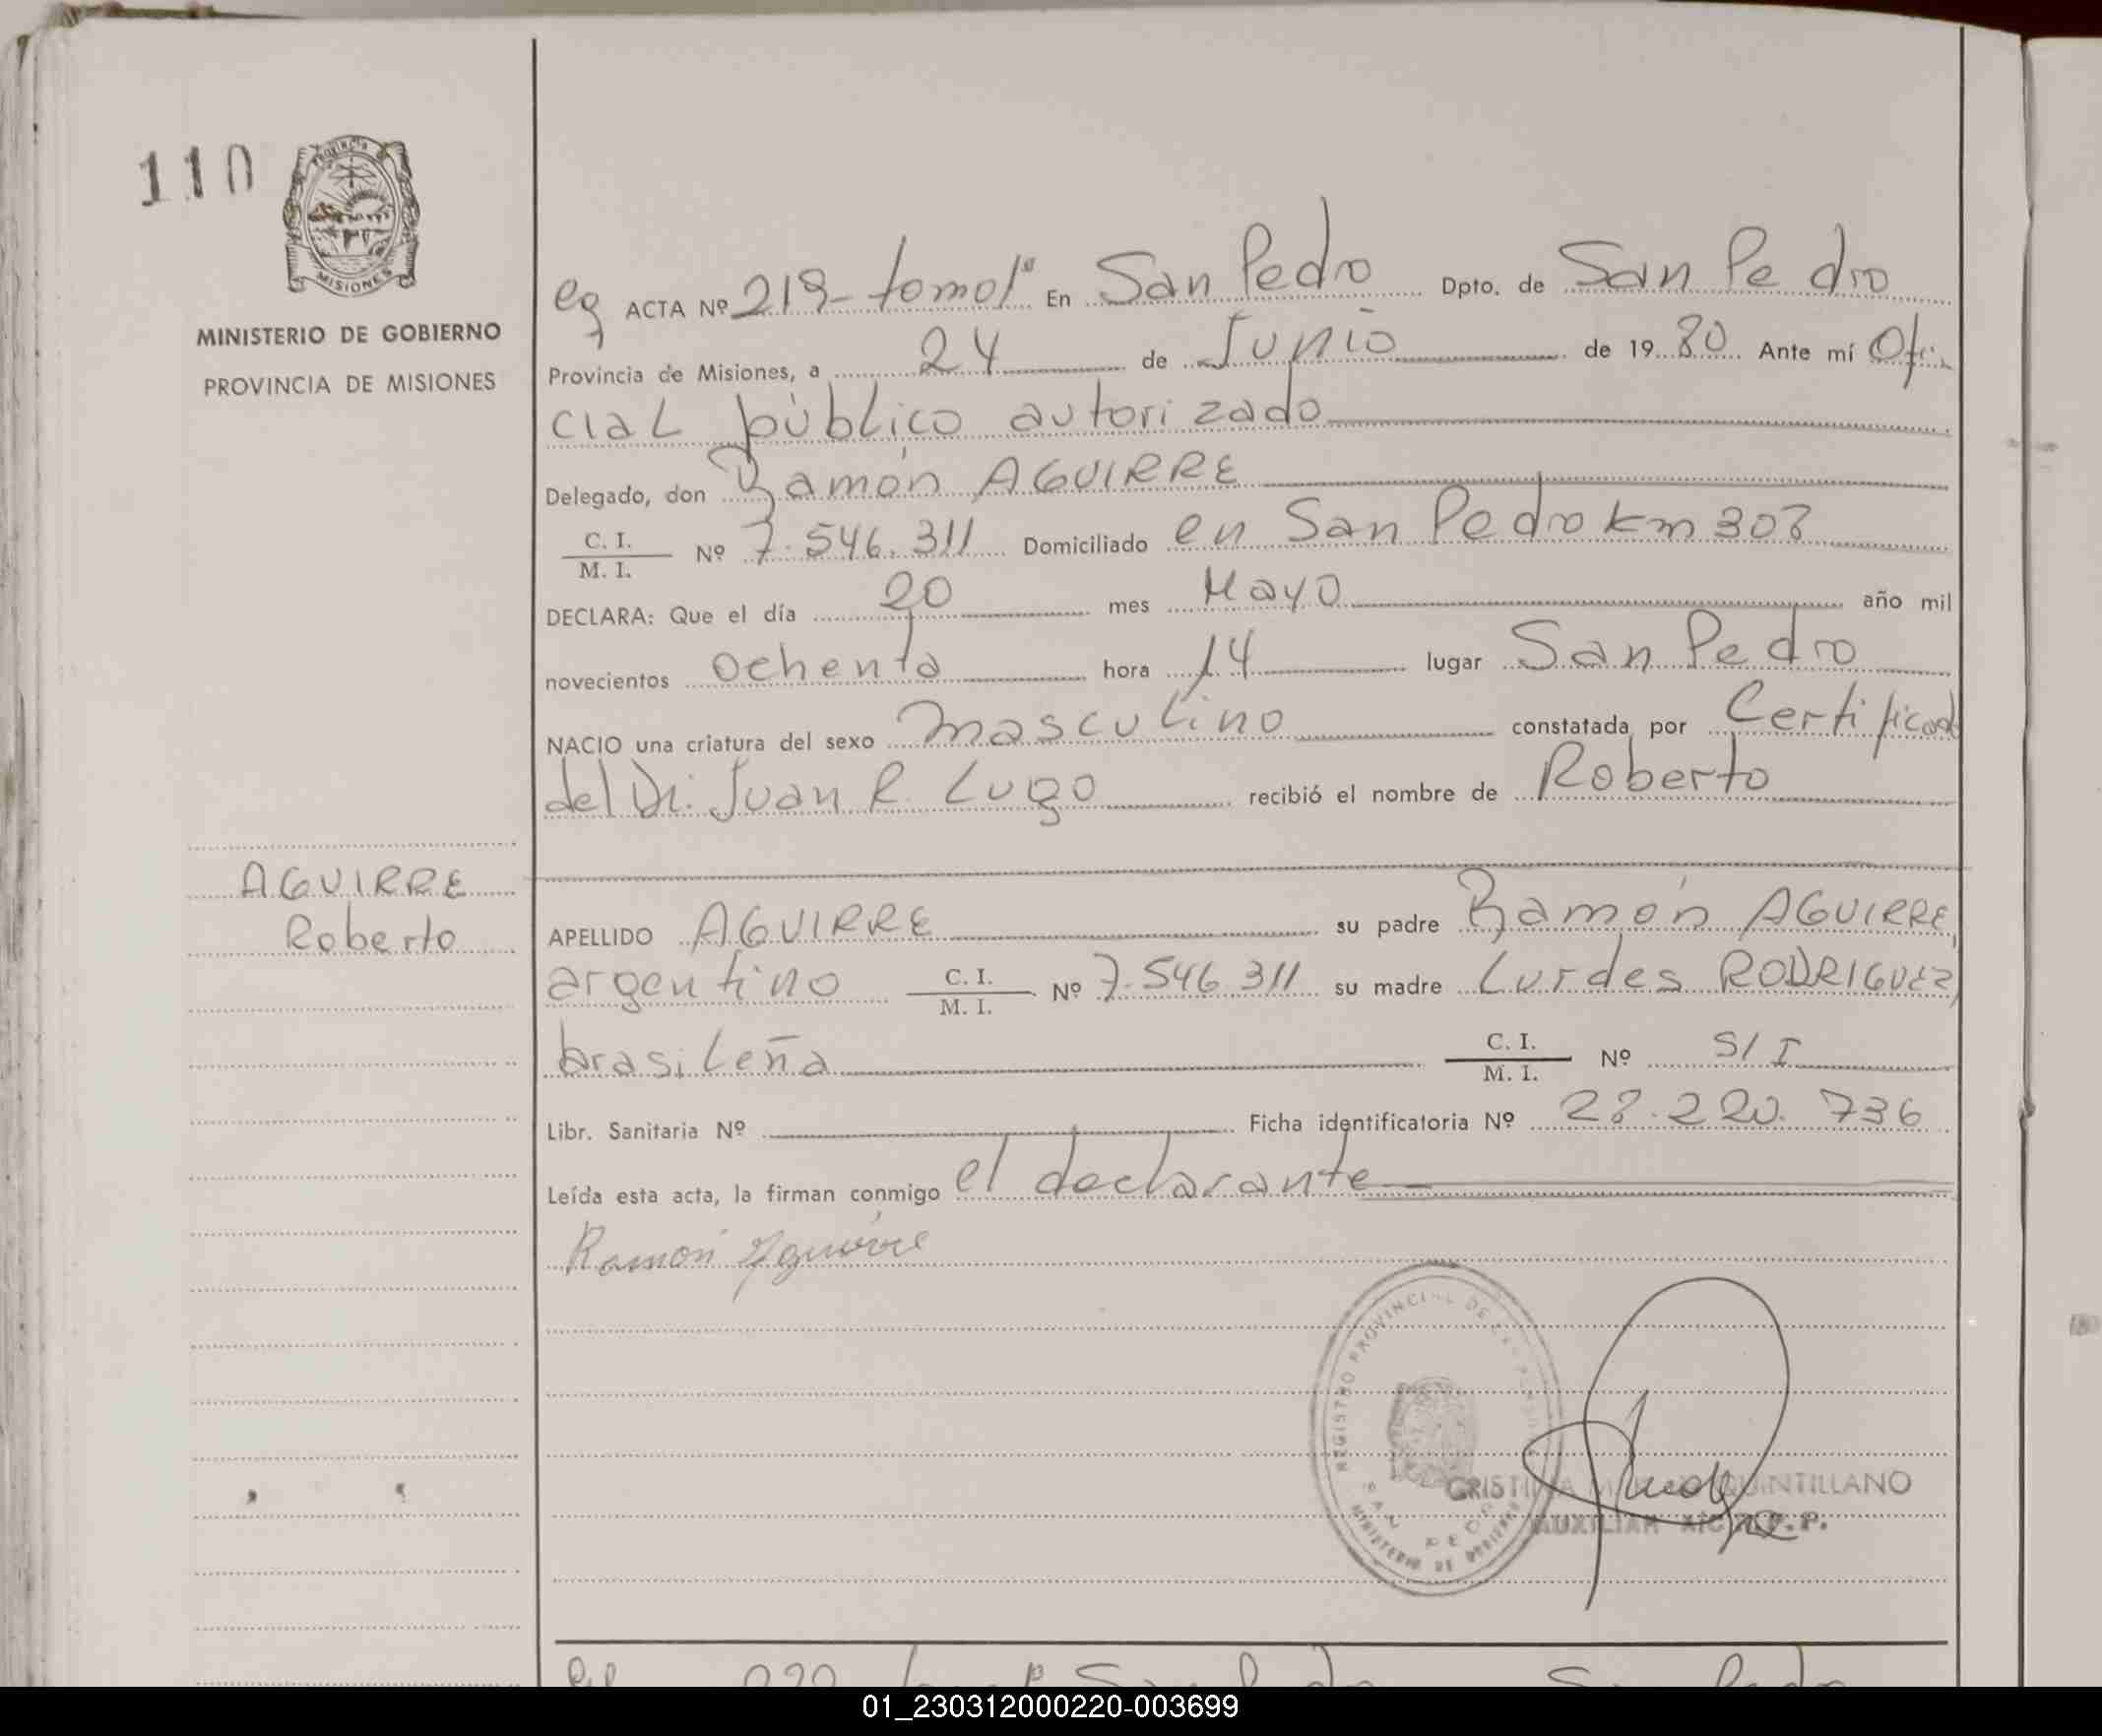 110
PROVINCIA
MISIONES
MINISTERIO DE GOBIERNO
PROVINCIA DE MISIONES
ACTA Nº 219- tomo 1º En San Pedro Dpto. de San Pedro
Provincia de Misiones, a 24 de Junio de 1980 Ante mí Ofi
cial público autorizado
Delegado, don Ramón AGUIRRE
C. I.
M. I. Nº 7.546.311 Domiciliado en San Pedro Km 308
DECLARA: Que el día 20 mes Mayo año mil
novecientos ochenta hora 14 lugar San Pedro
NACIO una criatura del sexo masculino constatada por Certificado
del Dr. Juan R. Lugo recibió el nombre de Roberto
AGUIRRE
Roberto
APELLIDO AGUIRRE su padre Ramón AGUIRRE,
argentino C. I.
M. I. Nº 7.546.311 su madre Lurdes RODRIGUEZ,
brasileña C. I.
M. I. Nº S/I
Libr. Sanitaria Nº Ficha identificatoria Nº 28.220.736
Leída esta acta, la firman conmigo el declarante
Ramón Aguirre
REGISTRO PROVINCIAL DE LAS PERSONAS
SAN PEDRO
MINISTERIO DE GOBIERNO
CRISTINA QUINTILLANO
AUXILIAR
01_230312000220-003699